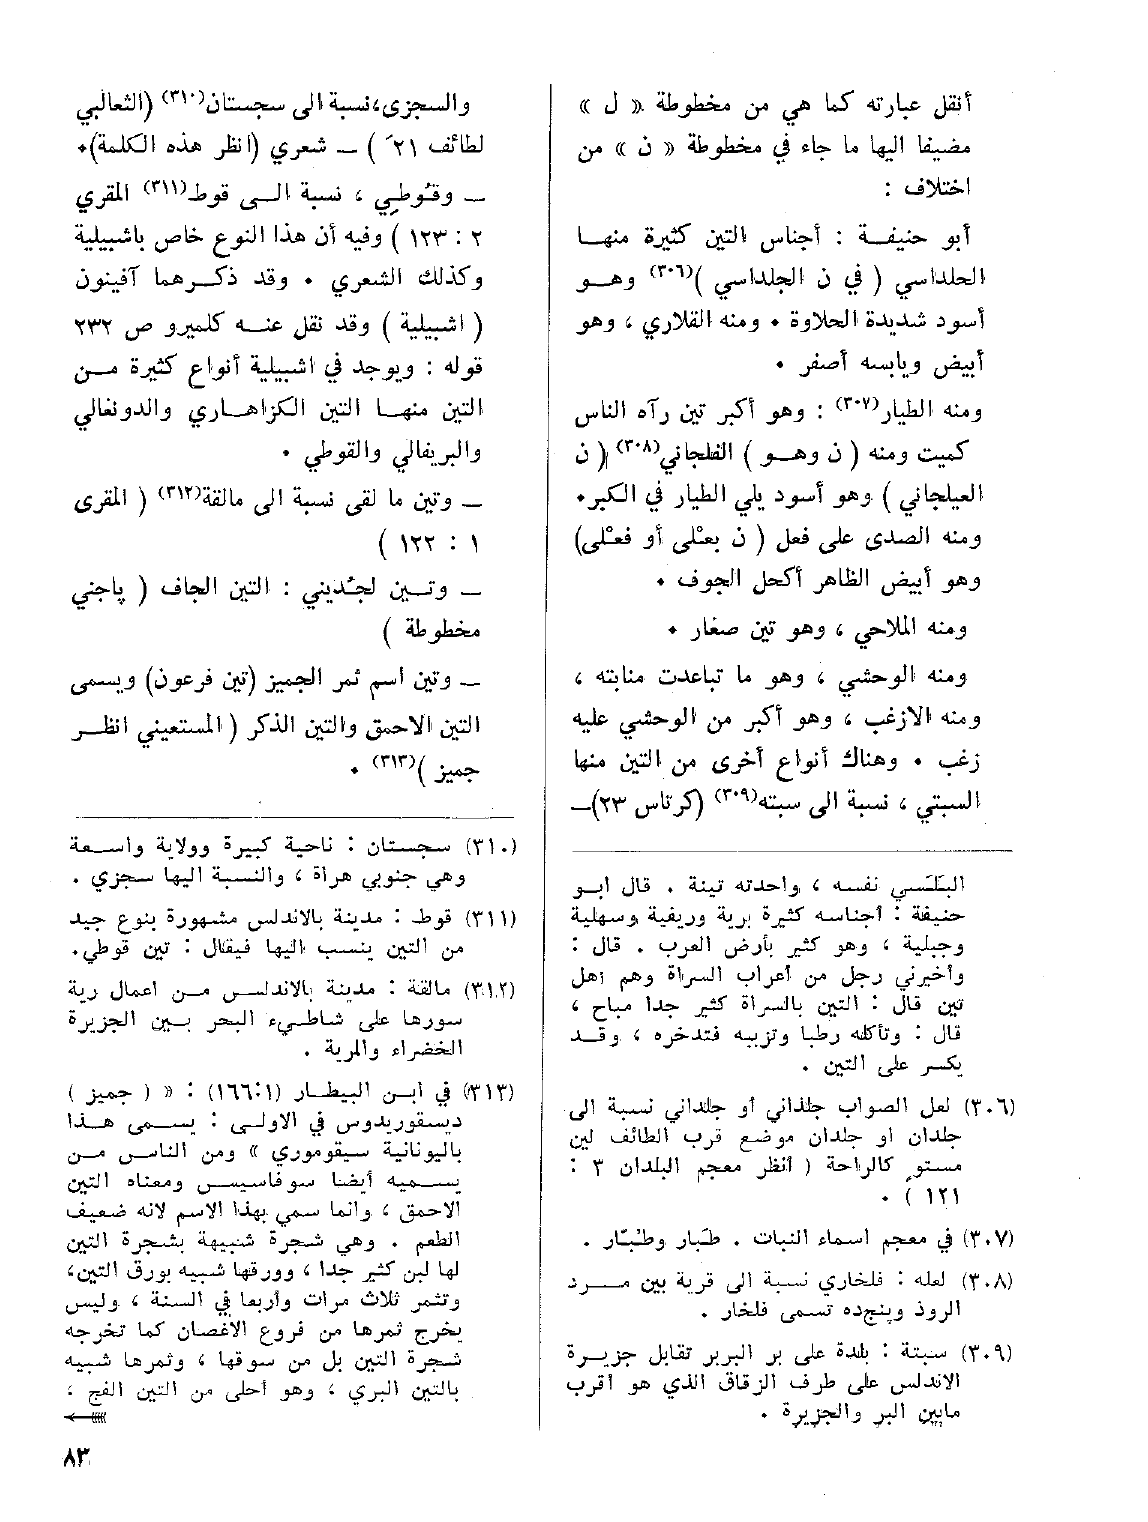 أنقل عبارته كما هي من مخطوطة « ل »
مضيفا اليها ما جاء في مخطوطة « ن » من
اختلاف :
أبو حنيفـة : أجناس التين كثيرة منهـا
الحلداسي ( في ن الجلداسي )(٣٠٦) وهـو
أسود شديدة الحلاوة • ومنه القلاري ، وهو
أبيض ويابسه أصفر •
ومنه الطيار(٣٠٧) : وهو أكبر تين رآه الناس
كميت ومنه ( ن وهـو ) الفلجاني(٣٠٨) ( ن
العيلجاني ) وهو أسود يلي الطيار في الكبر•
ومنه الصدى على فعل ( ن بعـْلى أو فعـْلى)
وهو أبيض الظاهر أكحل الجوف •
ومنه الملاحي ، وهو تين صغار •
ومنه الوحشي ، وهو ما تباعدت منابته ،
ومنه الازغب ، وهو أكبر من الوحشي عليه
زغب • وهناك أنواع أخرى من التين منها
السبتي ، نسبة الى سبته(٣٠٩) (كرتاس ٢٣)ــ
البَلَسي نفسه ، واحدته تينة . قال ابـو
حنيفة : أجناسه كثيرة برية وريفية وسهلية
وجبلية ، وهو كثير بأرض العرب . قال :
وأخبرني رجل من أعراب السراة وهم أهل
تين قال : التين بالسراة كثير جدا مباح ،
قال : وتأكله رطبا وتزببه فتدخره ، وقـد
يكسر على التين .
(٣٠٦) لعل الصواب جلداني أو جلذاني نسبة الى
جلدان او جلذان موضع قرب الطائف لين
مستو كالراحة ( أنظر معجم البلدان ٣ :
١٢١ ) •
(٣٠٧) في معجم اسماء النبات . طبار وطبّار .
(٣٠٨) لعله : فلخاري نسبة الى قرية بين مـرد
الروذ وينجده تسمى فلخار .
(٣٠٩) سبتة : بلدة على بر البربر تقابل جزيـرة
الاندلس على طرف الزقاق الذي هو أقرب
مابين البر والجزيرة .
والسجزي،نسبة الى سجستان(٣١٠) (الثعالبي
لطائف ٢١ ) ــ شعري (انظر هذه الكلمة)•
ــ وقـُوطي ، نسبة الـى قوط(٣١١) المقري
٢ : ١٢٣ ) وفيه أن هذا النوع خاص باشبيلية
وكذلك الشعري • وقد ذكـرهما آفينون
( اشبيلية ) وقد نقل عنـه كلميرو ص ٢٣٢
قوله : ويوجد في اشبيلية أنواع كثيرة مـن
التين منهـا التين الكزاهـاري والدونغالي
والبريفالي والقوطي •
ــ وتين ما لقى نسبة الى مالقة(٣١٢) ( المقرى
١ : ١٢٢ )
ــ وتـين لجُديني : التين الجاف ( پاجني
مخطوطة )
ــ وتين اسم ثمر الجميز (تين فرعون) ويسمى
التين الاحمق والتين الذكر ( المستعيني انظـر
جميز )(٣١٣) •
(٣١٠) سجستان : ناحية كبيرة وولاية واسـعة
وهي جنوبي هراة ، والنسبة اليها سجزي .
(٣١١) قوط : مدينة بالاندلس مشهورة بنوع جيد
من التين ينسب اليها فيقال : تين قوطي.
(٣١٢) مالقة : مدينة بالاندلـس مـن اعمال رية
سورها على شاطيء البحر بـين الجزيرة
الخضراء والمرية .
(٣١٣) في ابـن البيطـار (١٦٦:١) : « ( جميز )
ديسقوريدوس في الاولـى : يسـمى هـذا
باليونانية سيقوموري » ومن الناس مـن
يسـميه أيضا سوفاسيس ومعناه التين
الاحمق ، وانما سمي بهذا الاسم لانه ضعيف
الطعم . وهي شجرة شبيهة بشجرة التين
لها لبن كثير جدا ، وورقها شبيه بورق التين،
وتثمر ثلاث مرات وأربعا في السنة ، وليس
يخرج ثمرها من فروع الاغصان كما تخرجه
شجرة التين بل من سوقها ، وثمرها شبيه
بالتين البري ، وهو أحلى من التين الفج ،
٨٣